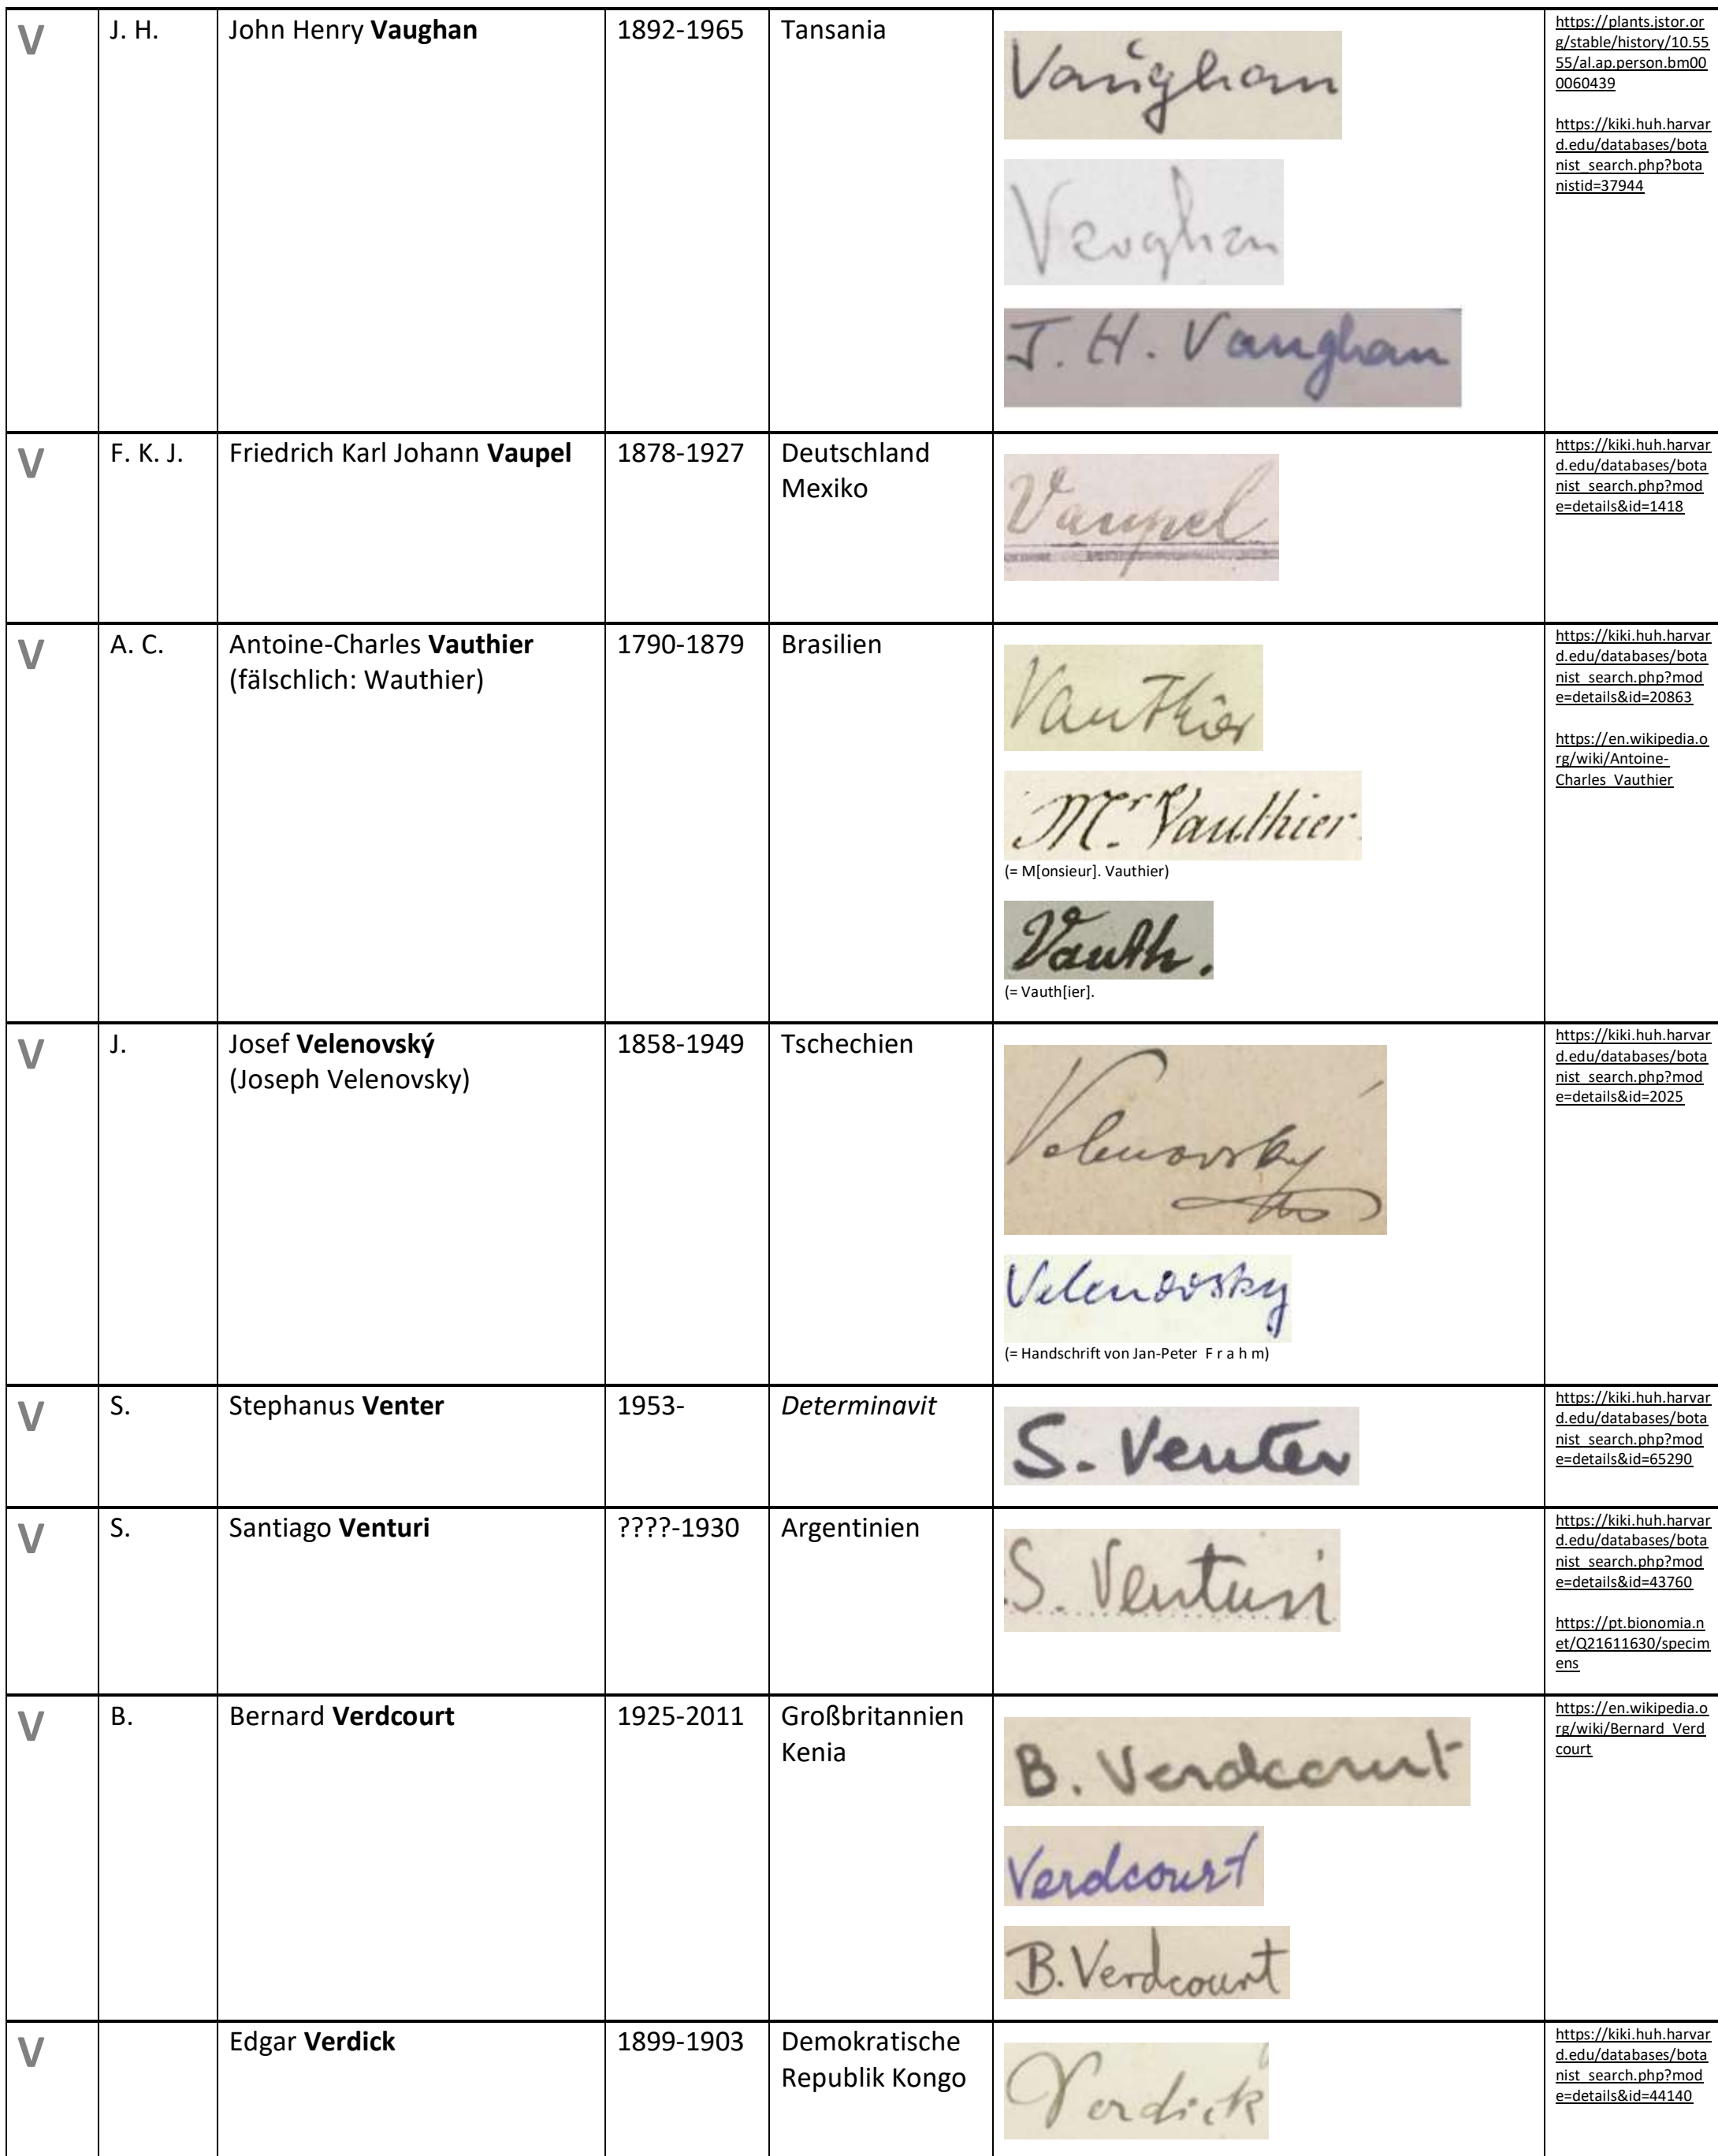 V
J. H.
John Henry Vaughan
1892-1965
Tansania
Vaughan
Vaughan
J. H. Vaughan
https://plants.jstor.or
g/stable/history/10.55
55/al.ap.person.bm00
0060439
https://kiki.huh.harvar
d.edu/databases/bota
nist_search.php?bota
nistid=37944
V
F. K. J.
Friedrich Karl Johann Vaupel
1878-1927
Deutschland
Mexiko
Vaupel
https://kiki.huh.harvar
d.edu/databases/bota
nist_search.php?mod
e=details&id=1418
V
A. C.
Antoine-Charles Vauthier
(fälschlich: Wauthier)
1790-1879
Brasilien
Vauthier
Mr. Vauthier
(= M[onsieur]. Vauthier)
Vauth.
(= Vauth[ier].
https://kiki.huh.harvar
d.edu/databases/bota
nist_search.php?mod
e=details&id=20863
https://en.wikipedia.o
rg/wiki/Antoine-
Charles_Vauthier
V
J.
Josef Velenovský
(Joseph Velenovsky)
1858-1949
Tschechien
Velenovský
Velenovsky
(= Handschrift von Jan-Peter F r a h m)
https://kiki.huh.harvar
d.edu/databases/bota
nist_search.php?mod
e=details&id=2025
V
S.
Stephanus Venter
1953-
Determinavit
S. Venter
https://kiki.huh.harvar
d.edu/databases/bota
nist_search.php?mod
e=details&id=65290
V
S.
Santiago Venturi
????-1930
Argentinien
S. Venturi
https://kiki.huh.harvar
d.edu/databases/bota
nist_search.php?mod
e=details&id=43760
https://pt.bionomia.n
et/Q21611630/specim
ens
V
B.
Bernard Verdcourt
1925-2011
Großbritannien
Kenia
B. Verdcourt
Verdcourt
B. Verdcourt
https://en.wikipedia.o
rg/wiki/Bernard_Verd
court
V
Edgar Verdick
1899-1903
Demokratische
Republik Kongo
Verdick
https://kiki.huh.harvar
d.edu/databases/bota
nist_search.php?mod
e=details&id=44140